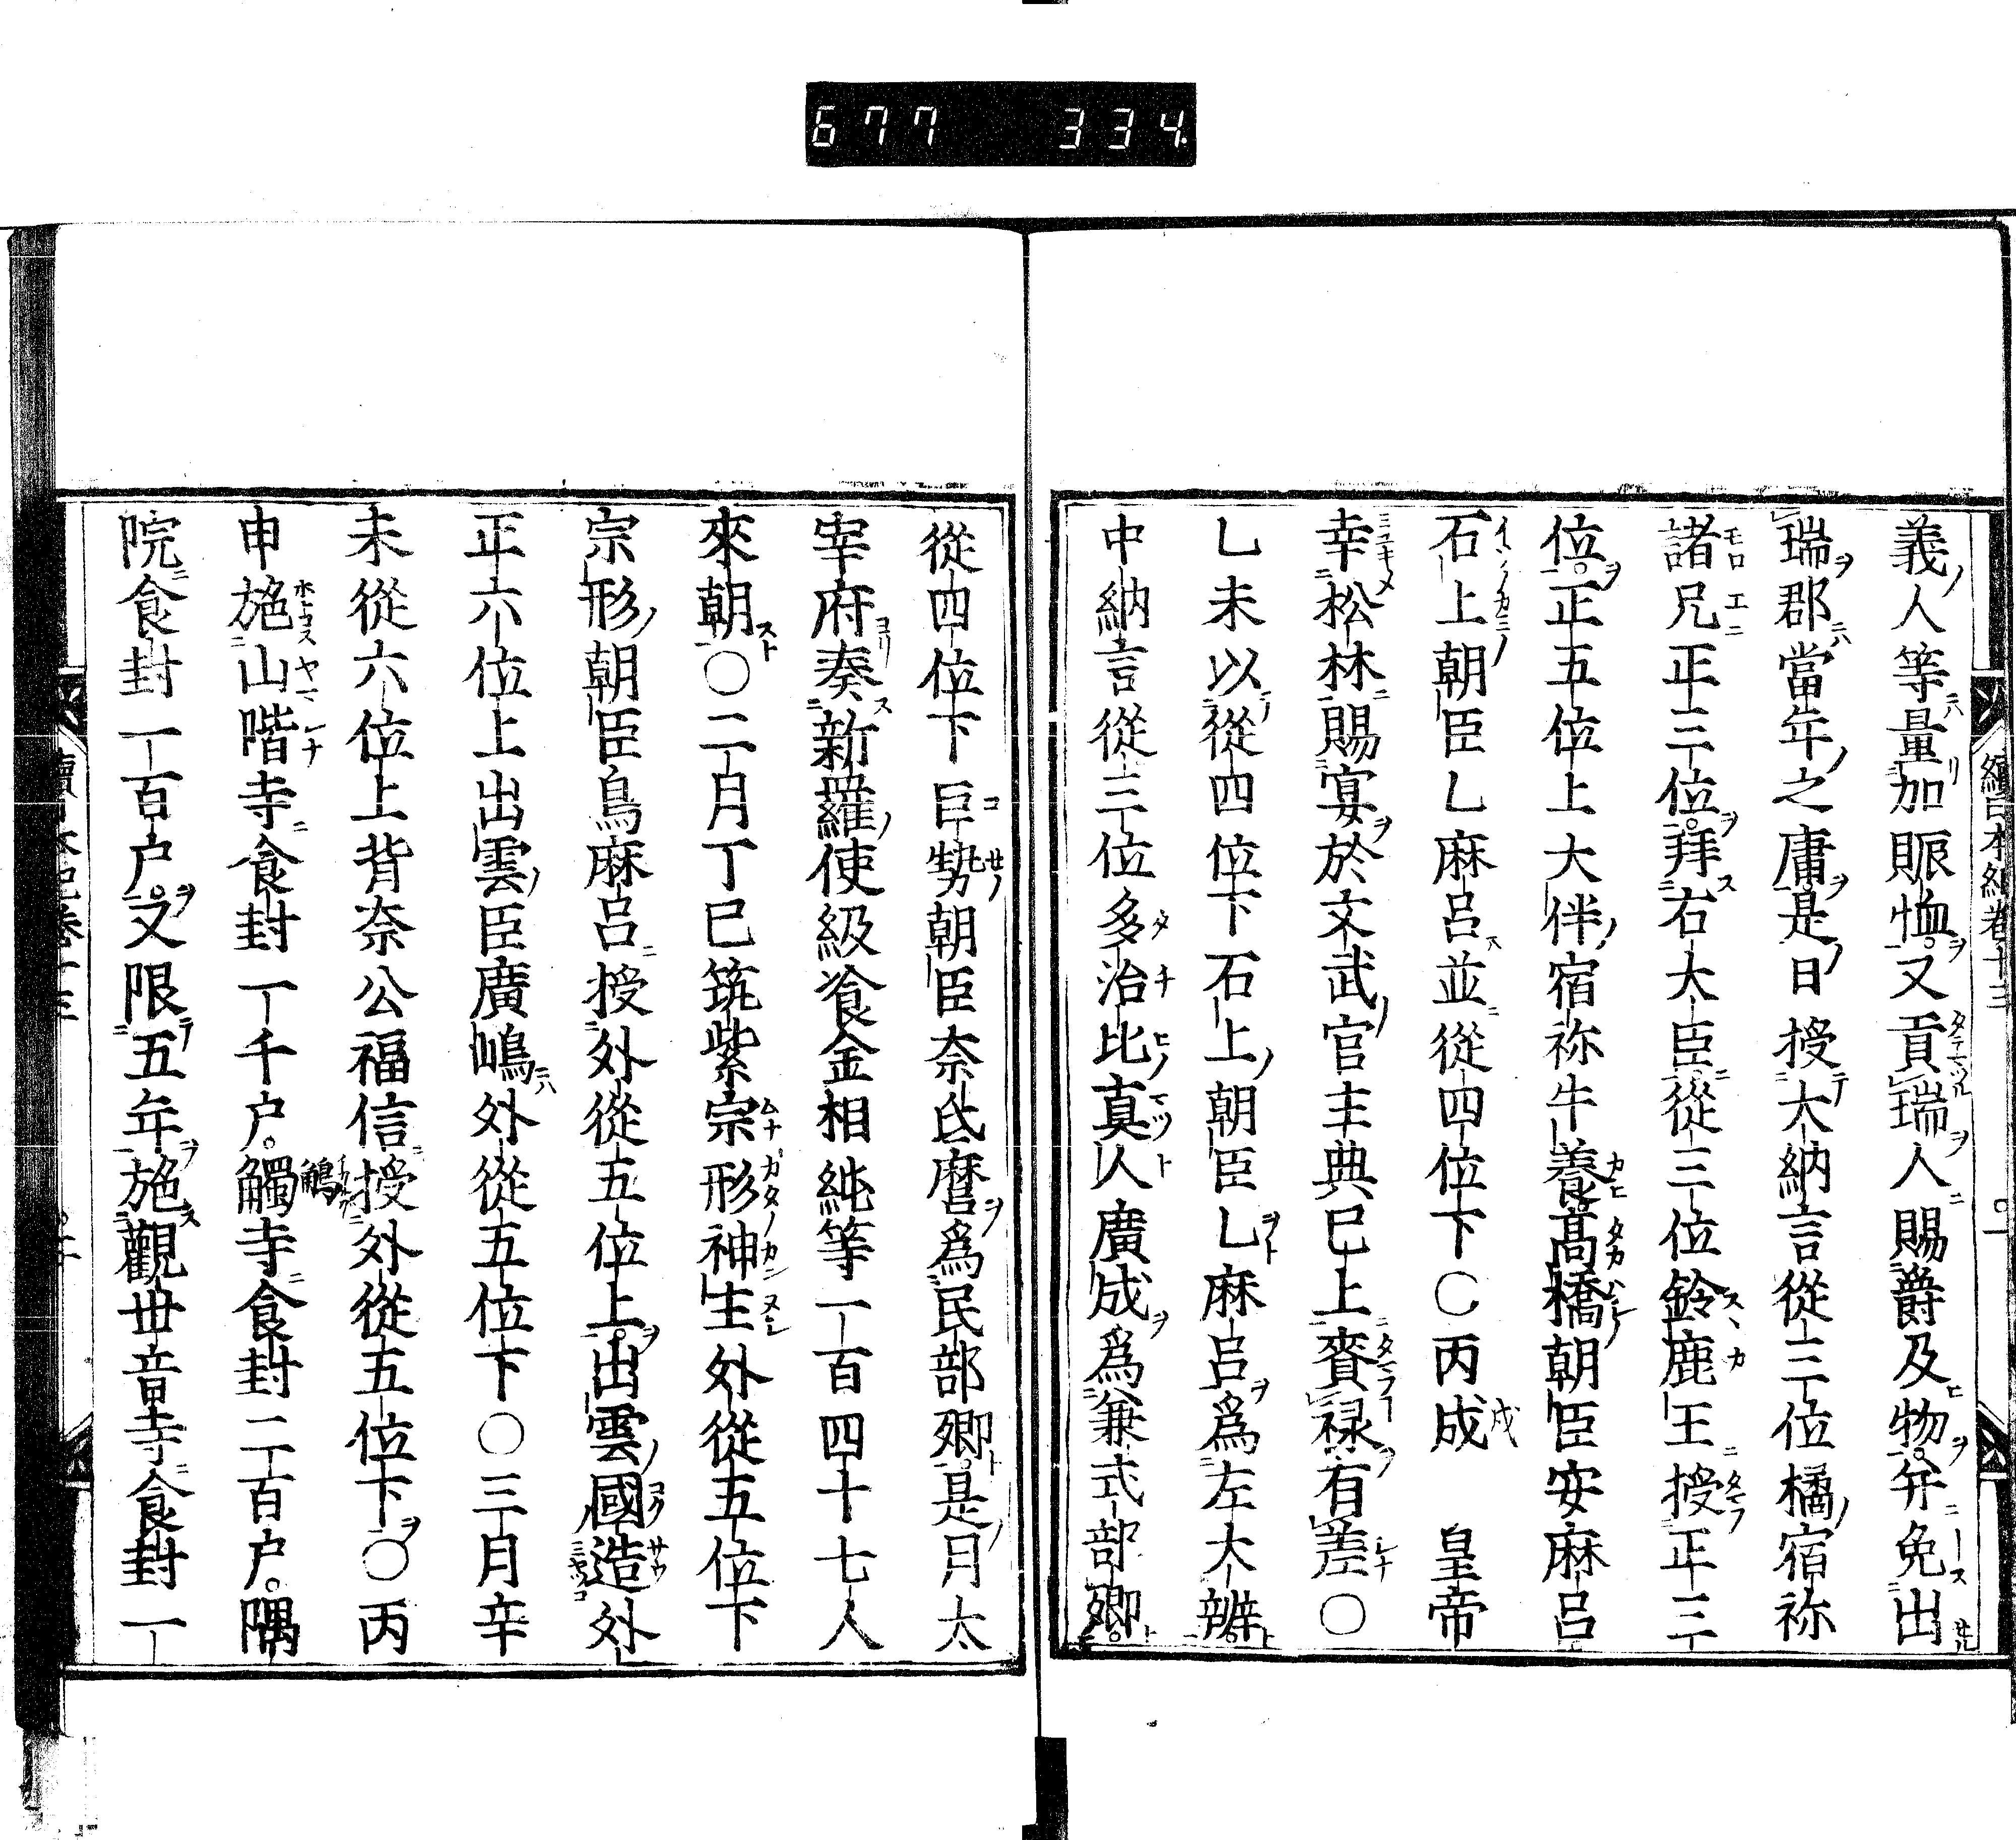 677 334.
續日本紀卷十三
義人等量加賑恤。又貢瑞人賜爵及物。幷免出
瑞郡當年之庸。是日授大納言從三位橘宿祢
諸兄正三位。拜右大臣從三位鈴鹿王授正三
位。正五位上大伴宿祢牛養。髙橋朝臣安麻呂
石上朝臣乚麻呂並從四位下〇丙成 皇帝
幸松林賜宴於文武官主典巳上賚禄有差〇
乚未以從四位下石上朝臣乚麻呂爲左大辨。
中納言從三位多治比真人廣成爲兼式部卿。
從四位下巨勢朝臣奈氐麿爲民部卿。是月太
宰府奏新羅使級飡金相純等一百四十七人
來朝〇二月丁巳筑紫宗形神主外從五位下
宗形朝臣鳥麻呂授外從五位上。出雲國造外
正六位上出雲臣廣嶋外從五位下〇三月辛
未從六位上背奈公福信授外從五位下〇丙
申施山階寺食封一千户。觸寺食封二百户。隅
院食封一百户。又限五年施觀丗音寺食封一